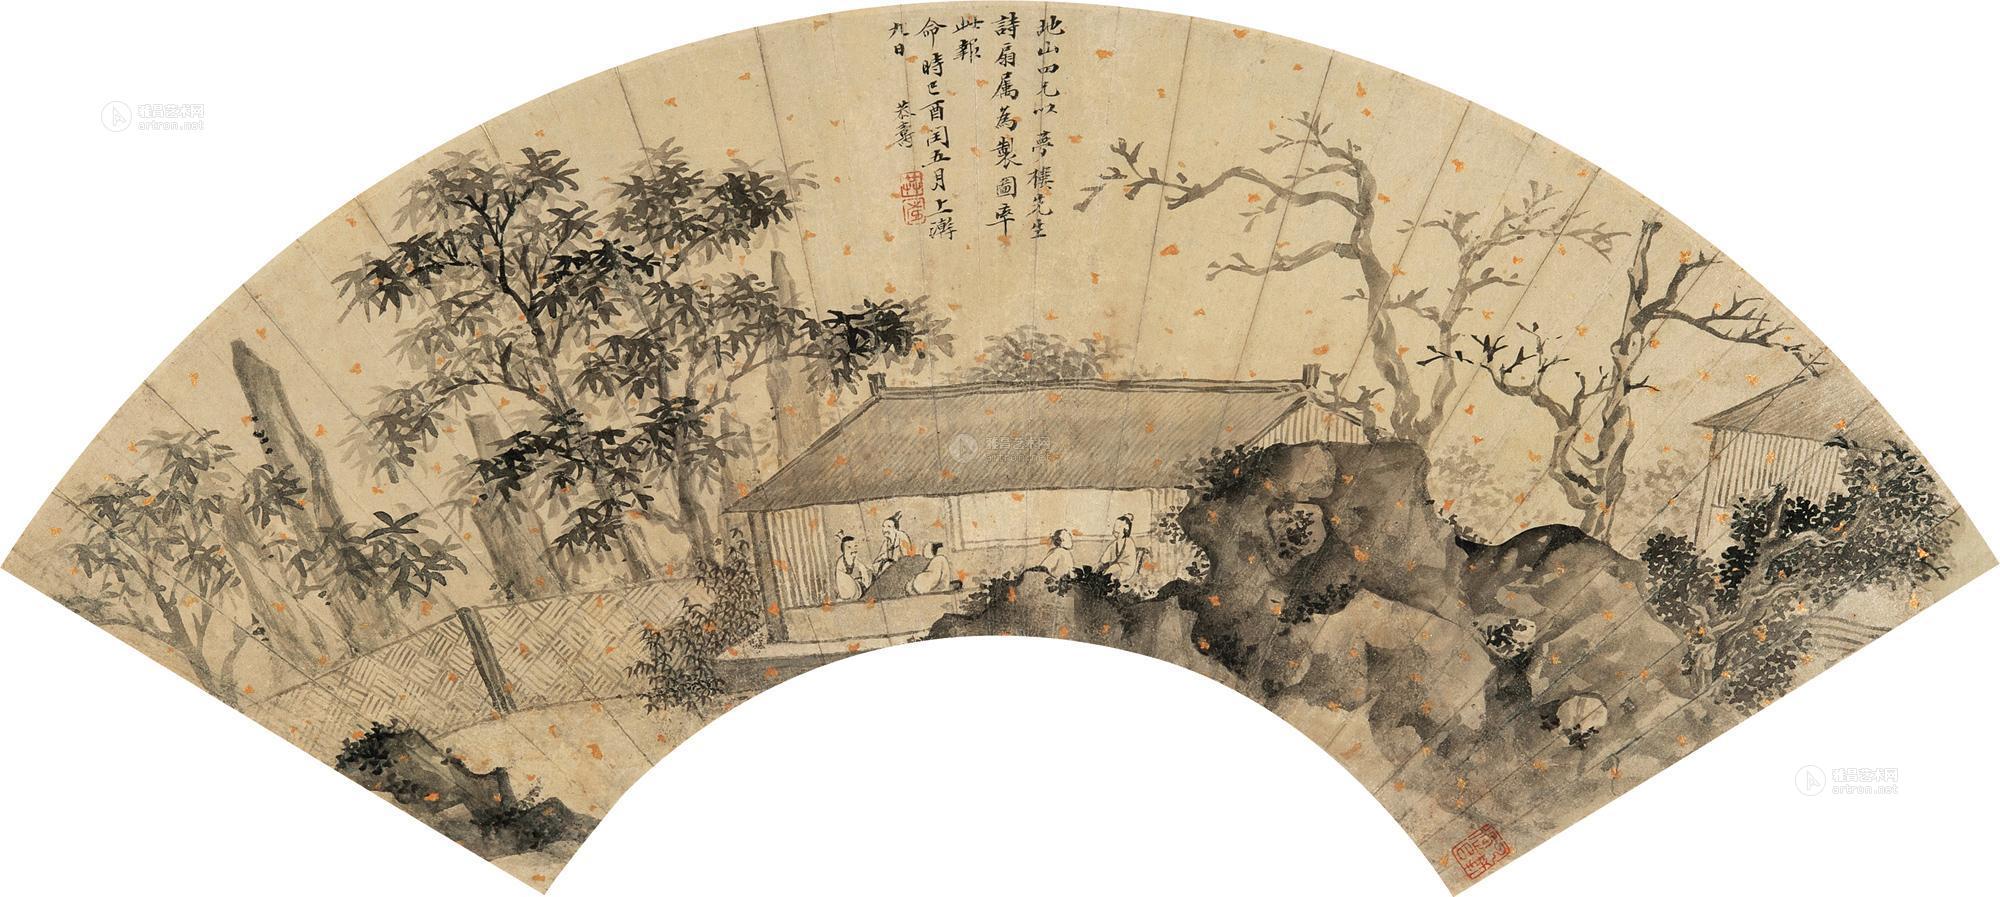 地山四兄以夢樓先生
詩扇属為製圖率
此報
命時己酉閏五月上澣
九日
恭壽
雅昌艺术网
artron.net
雅昌艺术网
artron.net
雅昌艺术网
artron.net